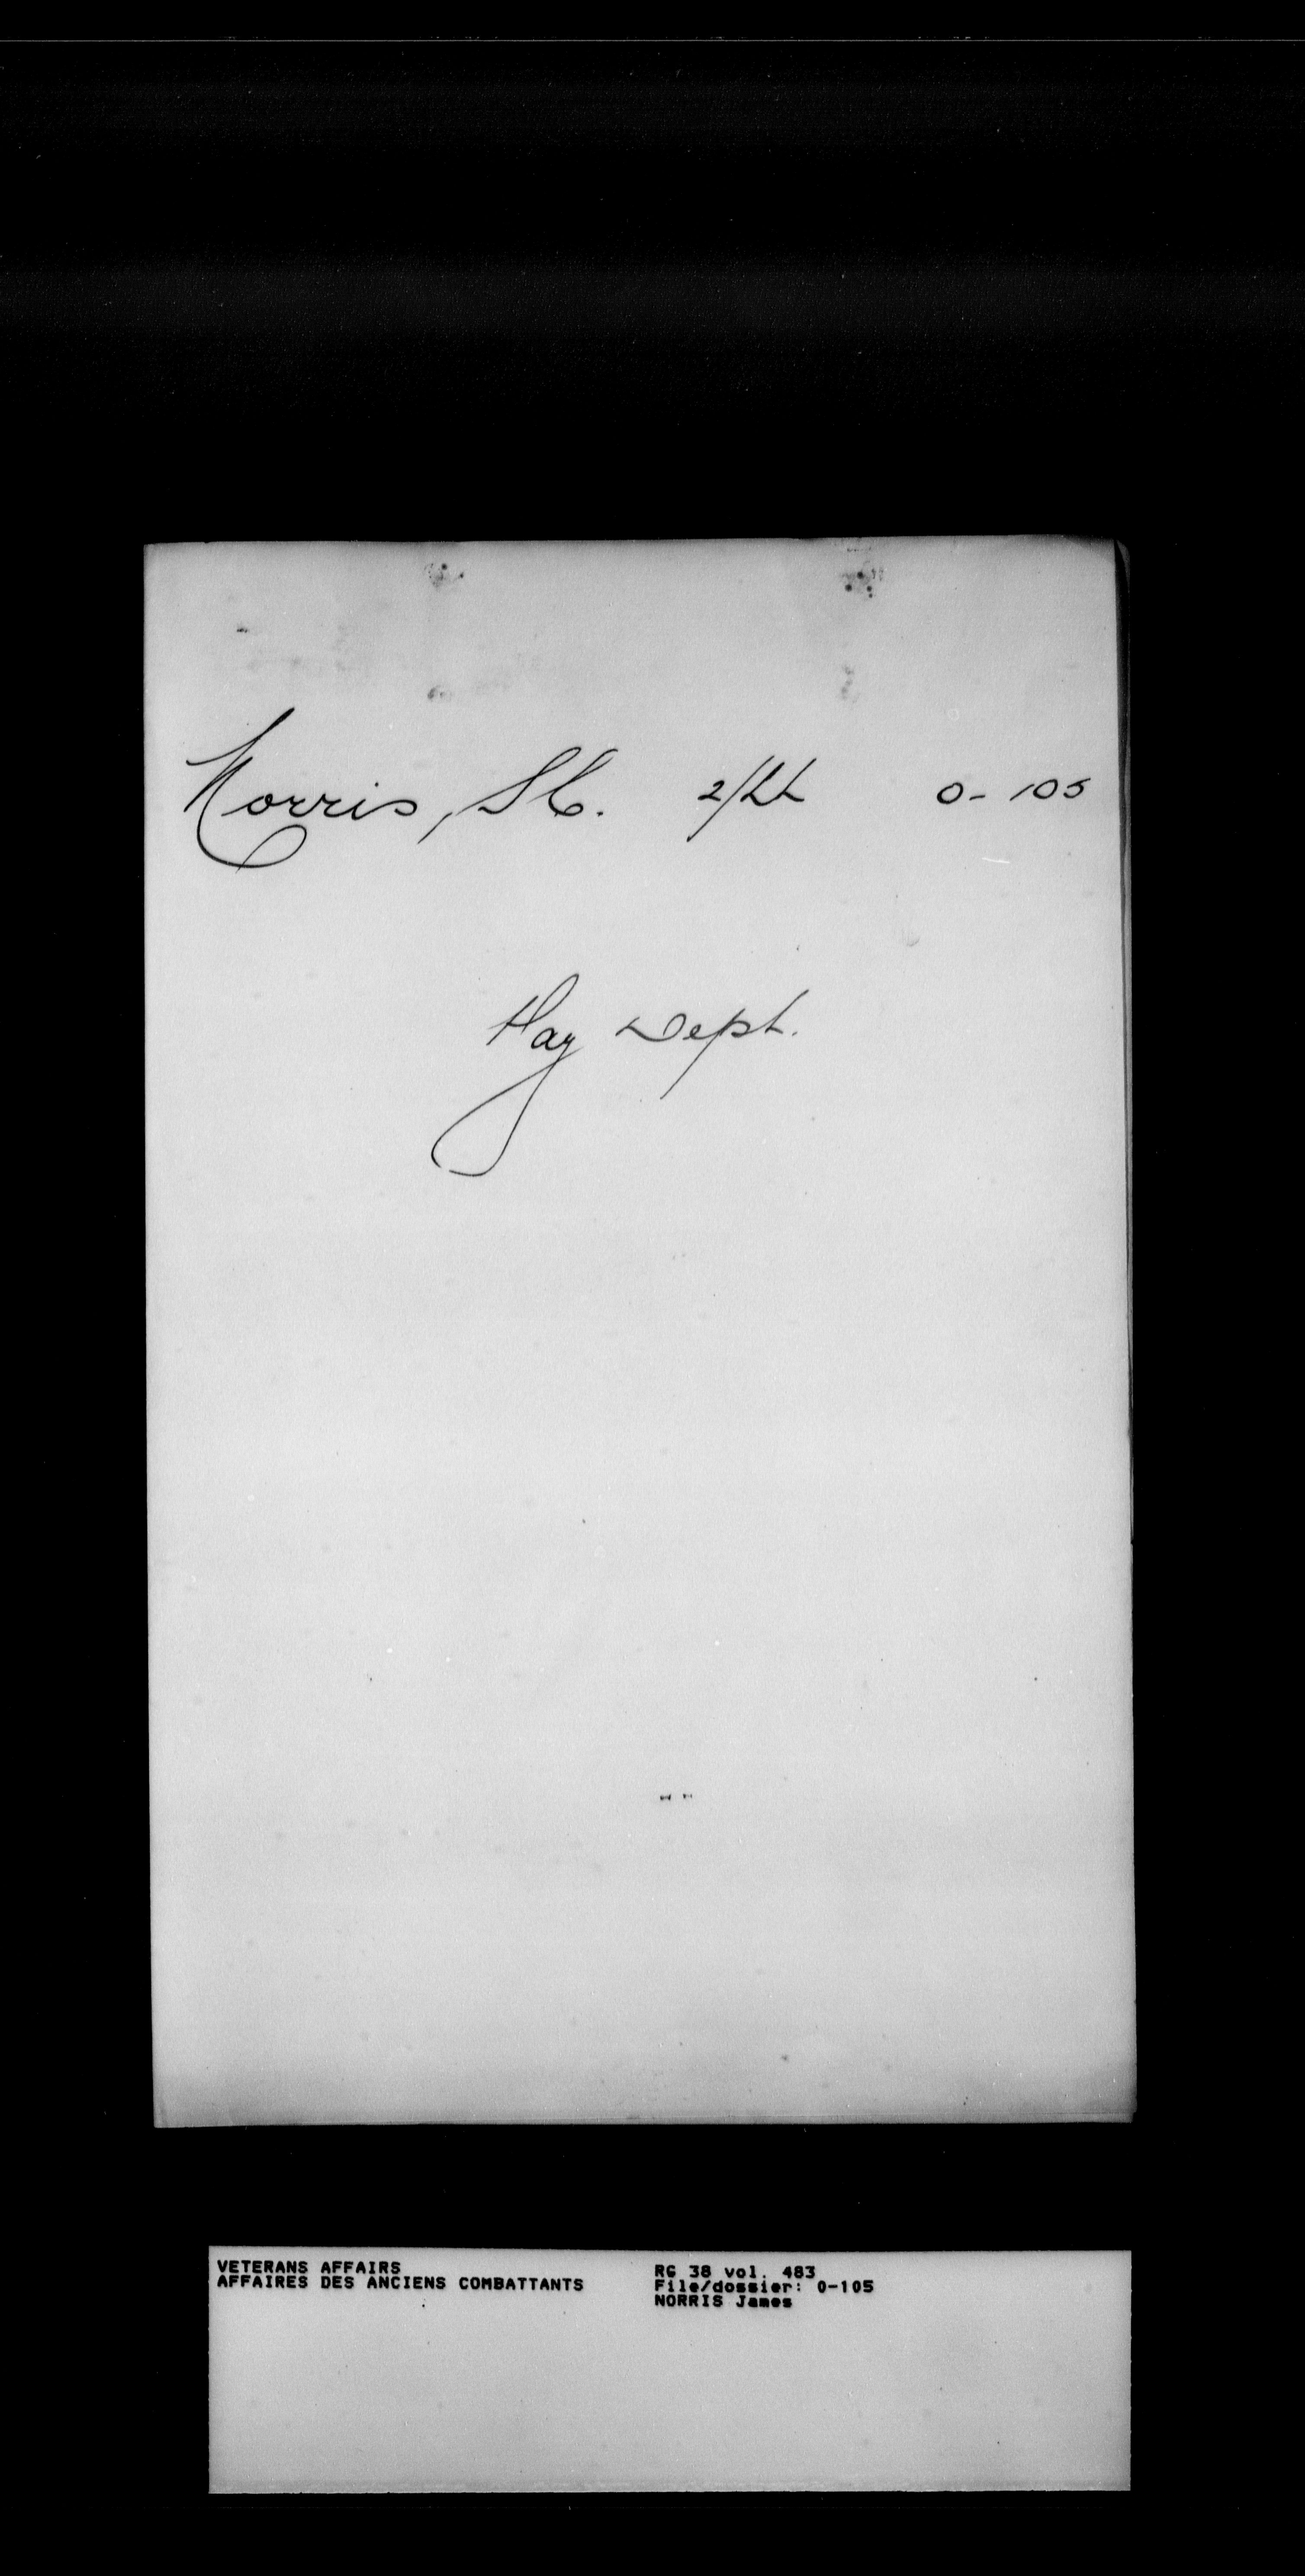 Norris, Jas. 2/Lt 0-105
Pay Dept.
VETERANS AFFAIRS RG 38 vol. 483
AFFAIRES DES ANCIENS COMBATTANTS File/dossier: 0-105
NORRIS James